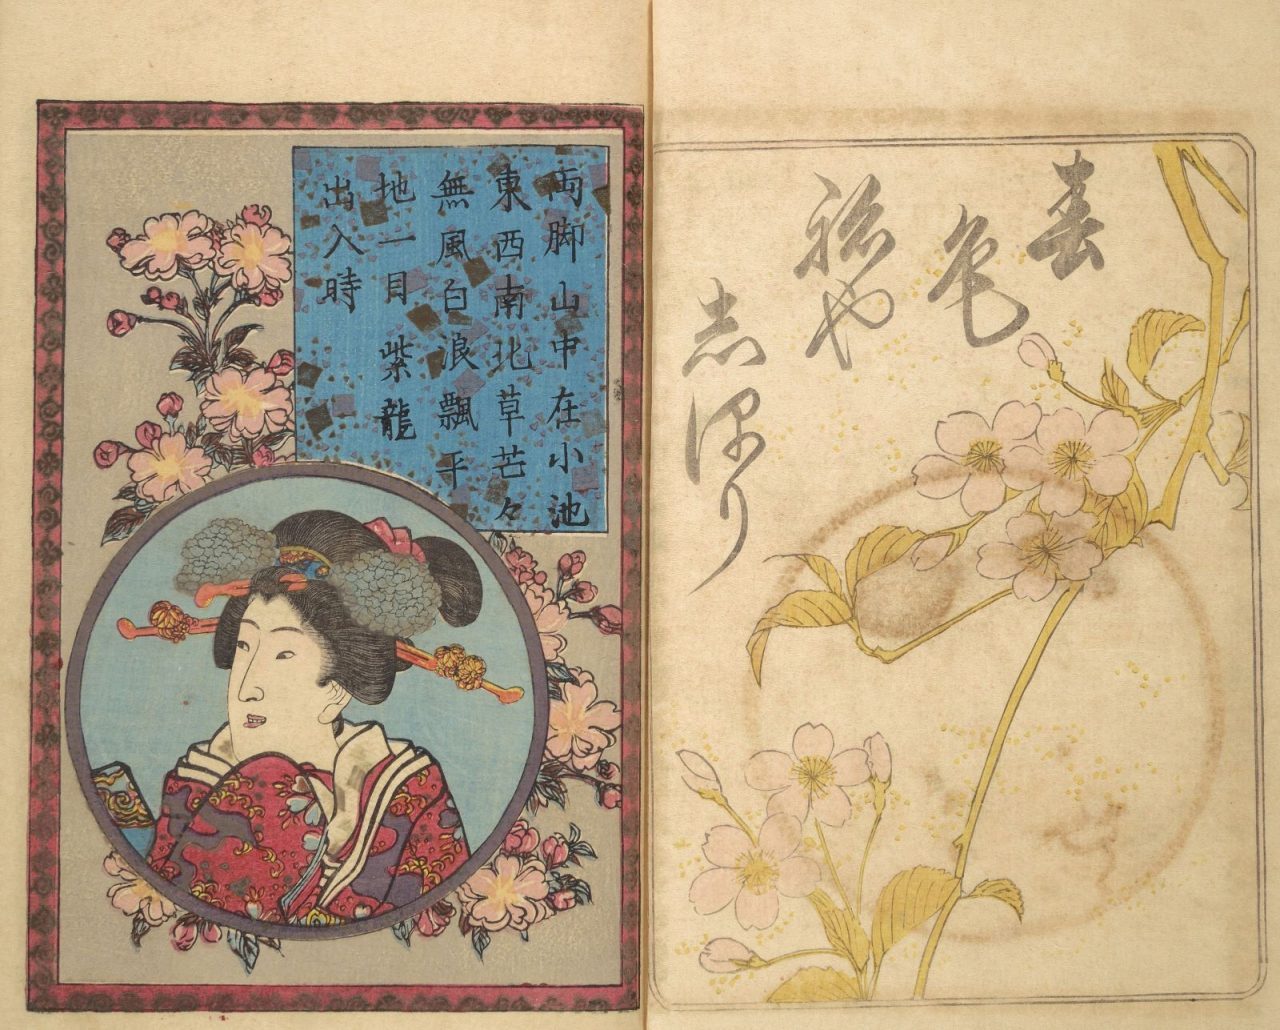 春色
祢や
志満り
両脚山中在小池
東西南北草芒々
無風白浪飄平
地一目紫龍
出入時